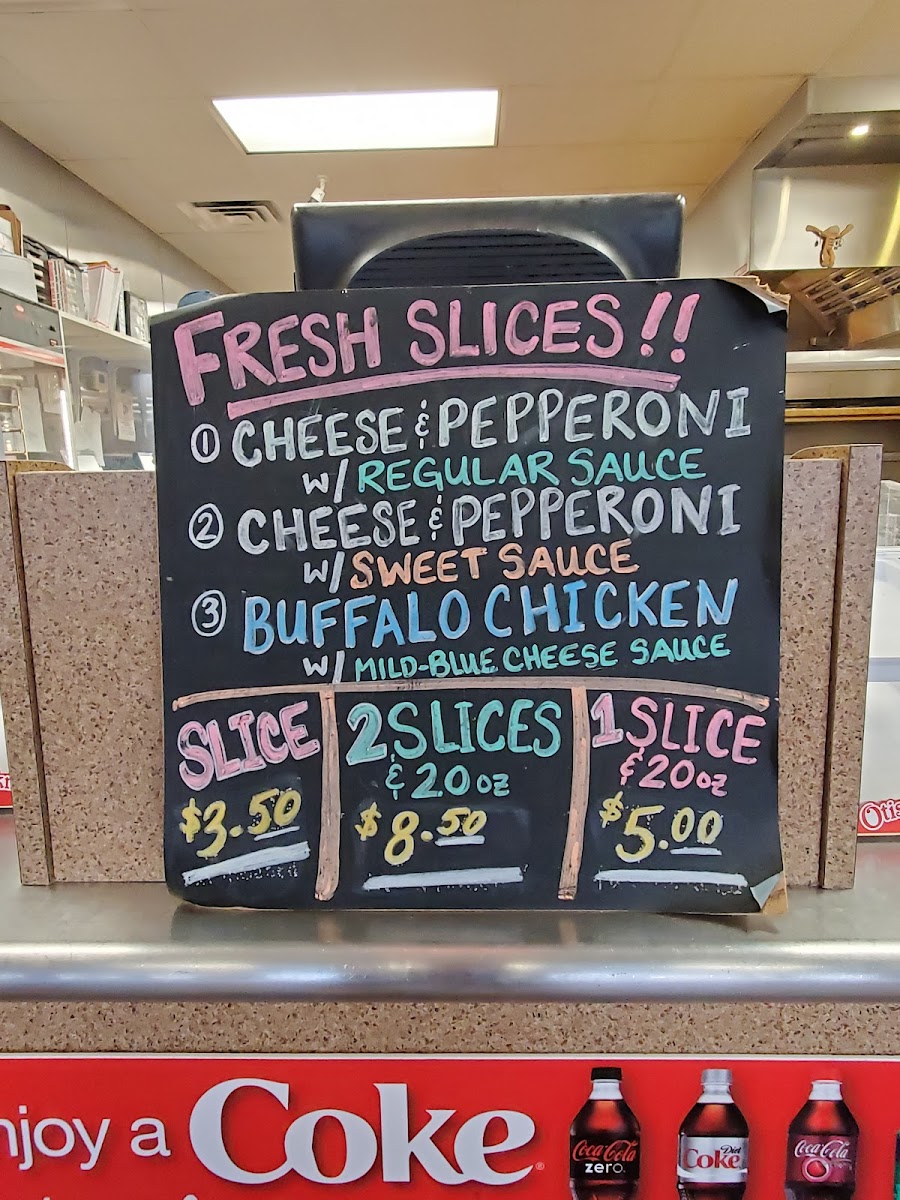 FRESH SLICES!!
① CHEESE & PEPPERONI
W/ REGULAR SAUCE
② CHEESE & PEPPERONI
W/ SWEET SAUCE
③ BUFFALO CHICKEN
W/ MILD-BLUE CHEESE SAUCE
SLICE
$3.50
2 SLICES
& 20 oz
$8.50
1 SLICE
& 20 oz
$5.00
Otis
njoy a Coke
Coca-Cola
zero
Diet
Coke
Coca-Cola